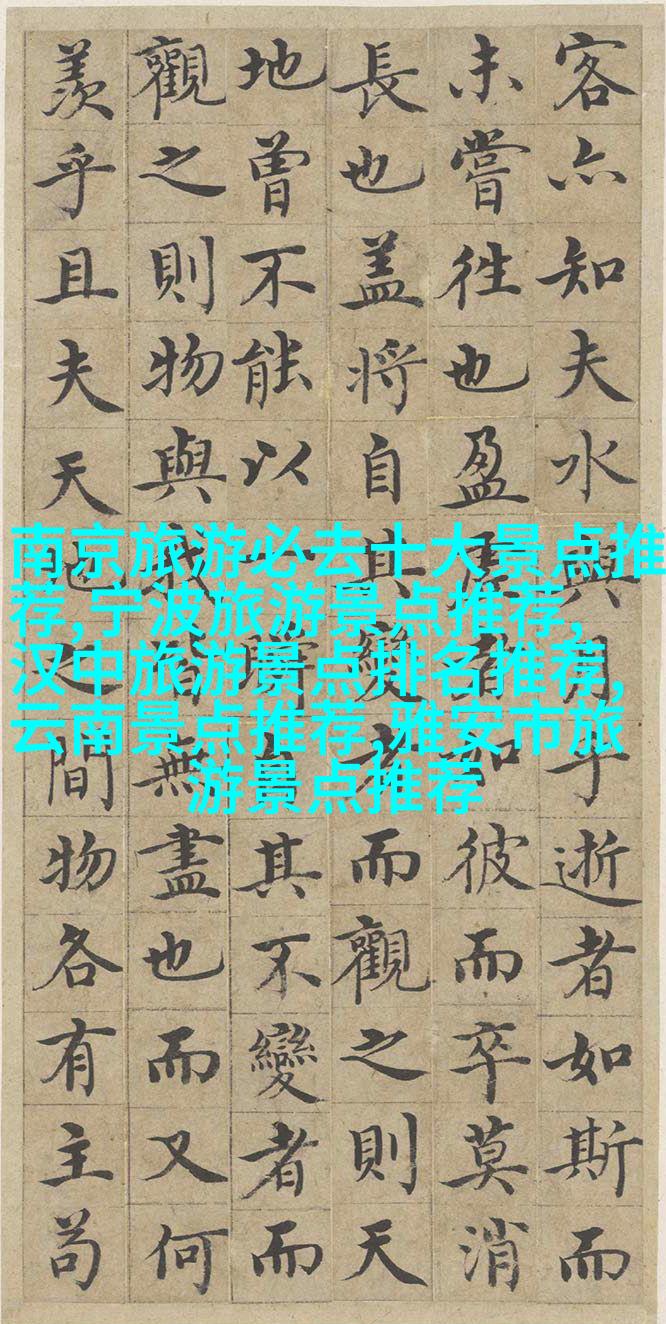 客亦知夫水與月乎逝者如斯而
未嘗往也盈虛者如彼而卒莫消
長也盖將自其變者而觀之則天
地曾不能以一瞬自其不變者而
觀之則物與我皆無盡也而又何
羨乎且夫天地之間物各有主苟
南京旅游必去十大景点推
荐,宁波旅游景点推荐,
汉中旅游景点排名推荐,
云南景点推荐,雅安市旅
游景点推荐